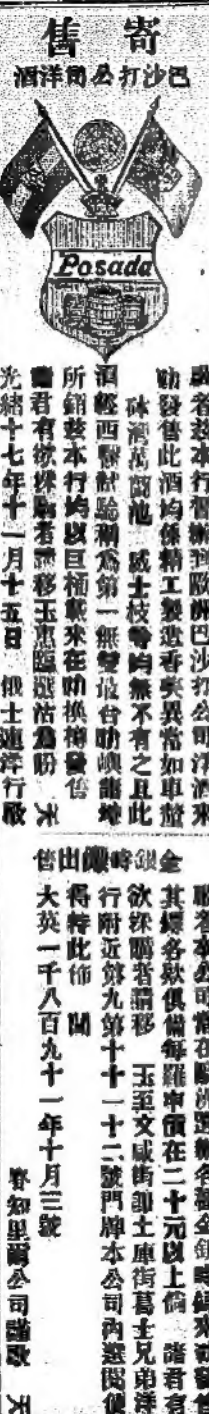 寄售
巴沙打公司洋酒
Posada
啟者茲本行督辦到歐洲巴沙打公司洋酒來
叻發售此酒均係精工製造香美異常如車釐
砵酒萬蘭池 威士枝等均無不有之且此
酒經西醫試驗稱為第一無雙最台叻嶼諸埠
所銷茲本行均以巨桶載來在叻換樽發售
諸君有欲採購者請移玉惠臨選沽為盼 天
光緒十七年十一月十五日 俄士連洋行啟
金銀時鏢出售
啟者本公司常在歐洲選辦各號金銀時鏢來叻發售
其鏢各款俱備每羅申價在二十元以上倘 諸者有
欲採購者請移 玉至文咸街即土庫街葛士兄弟洋
行附近第九第十十一十二號門牌本公司內選閱便
得特此佈 聞
大英一千八百九十一年十月三號
麥知里爾公司謹啟 天